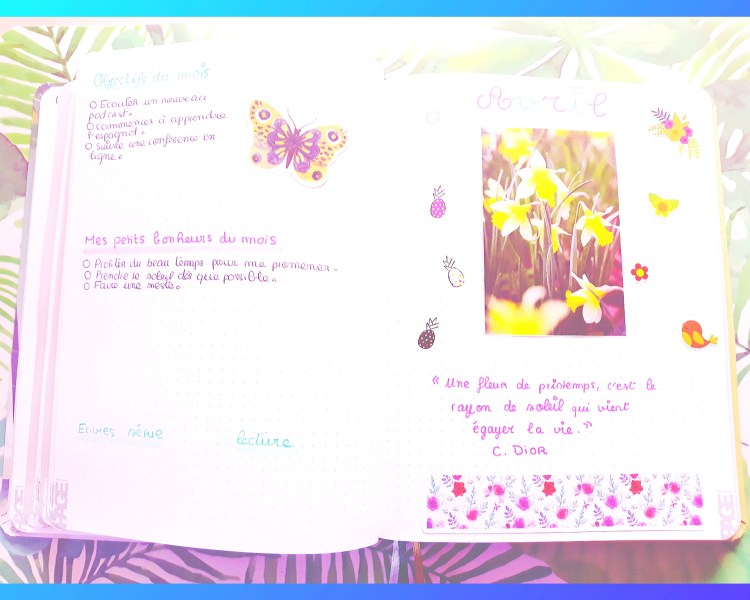 Objectifs du mois
O Ecouter un nouveau
podcast.
O commencer à apprendre
l'espagnol.
O Suivre une conférence en
ligne.
Mes petits bonheurs du mois
O Profiter du beau temps pour me promener.
O Prendre le soleil dès que possible.
O Faire une sieste.
Envies série
lecture
Avril
“ Une fleur de printemps, c'est le
rayon de soleil qui vient
égayer la vie. ”
C. DIOR